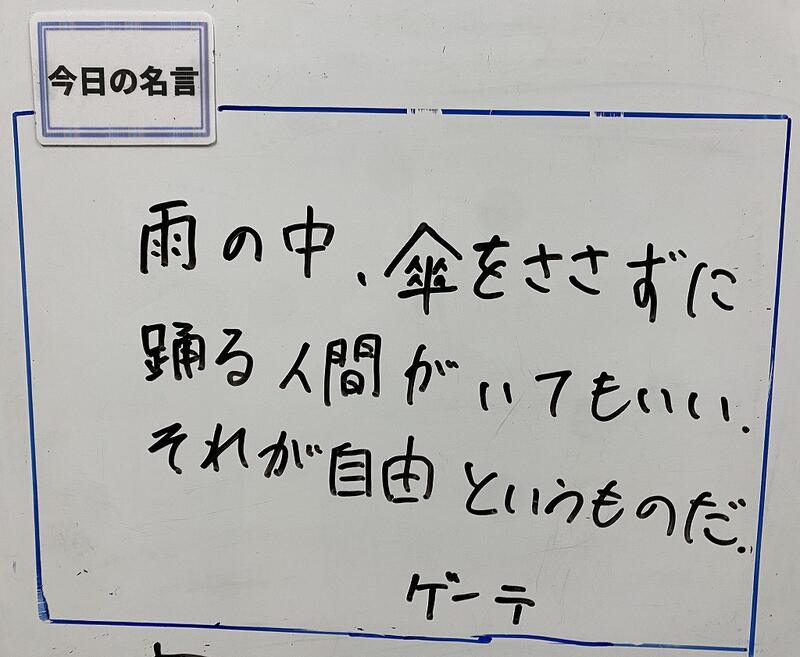 今日の名言
雨の中、傘をささずに
踊る人間がいてもいい.
それが自由というものだ.
ゲーテ